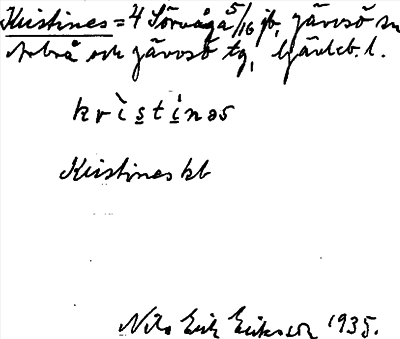 Kristines = 4 Sörvåga 5/16 jb, Järvsö sn
Arbrå och Järvsö tg, Gävleb. l.
kristinəs
Kristines kb
Nils Erik Eriksson 1935.